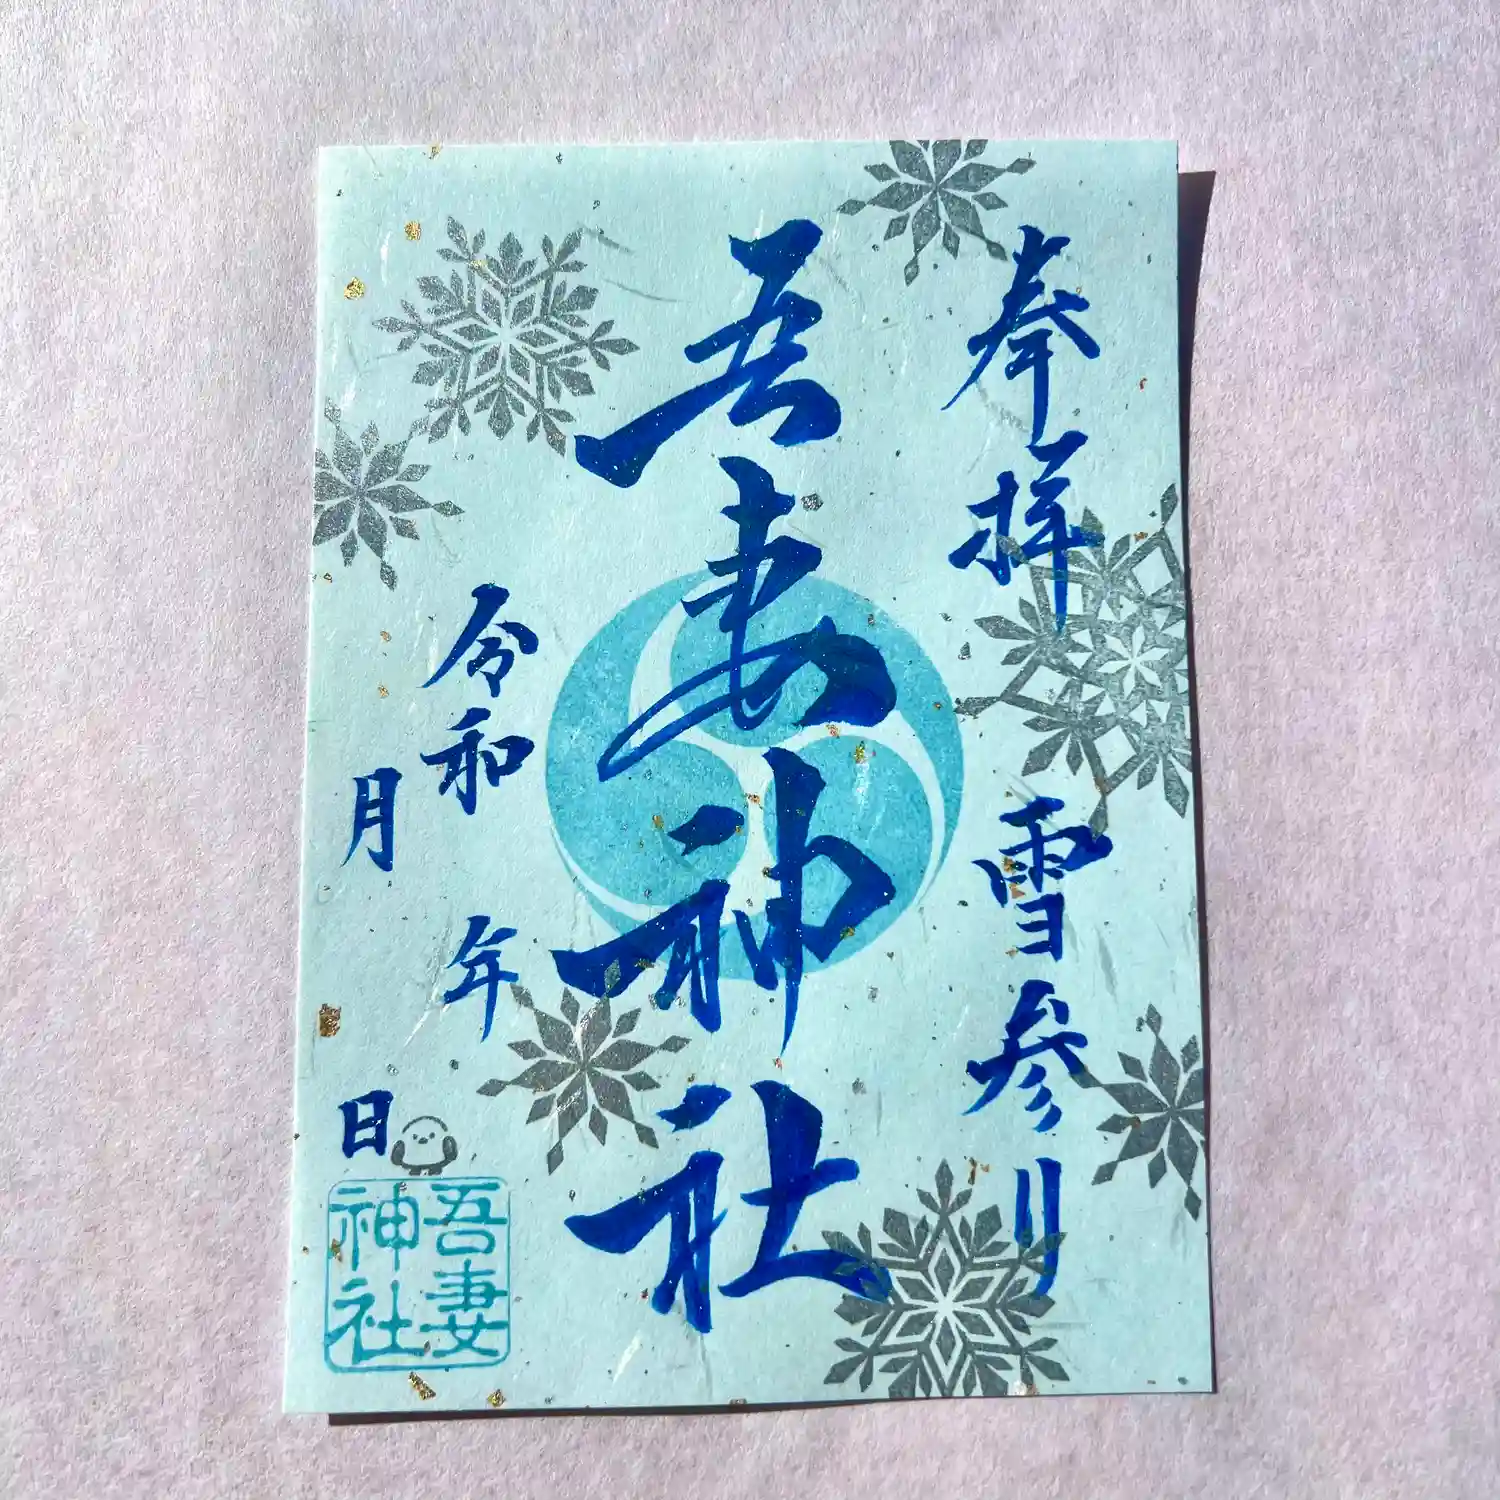 奉拝 雪参り
吾妻神社
令和 年
月 日
吾妻
神社